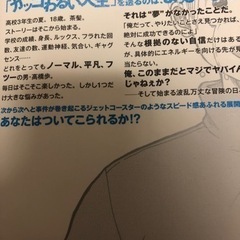 「カッコわるい人生」を送るのは、
高校3年生の夏。18歳。茶髪。
ストーリーはそこから始まる。
学校の成績、身長、ルックス、フラれた回
数、友達の数、運動神経、気合い、ギャグ
センス――
どれをとってもノーマル、平凡、フ
ツーの男・高橋歩。
毎日はそこそこ楽しかった。しかし1つだ
け大きな悩みがあった。
それは“夢”がなかったこと
「俺だって、やりたいことさえ
絶対に成功できるのによ!」
そんな根拠のない自信だけはある
が、具体的にエネルギーを向ける先が
当たらない。
俺、このままだとマジでヤバイん
じゃねぇか?
――そして始まる波乱万丈な冒険の日
次から次へと事件が巻き起こるジェットコースターのようなスピード感あふれる展開
あなたはついてこられるか!?